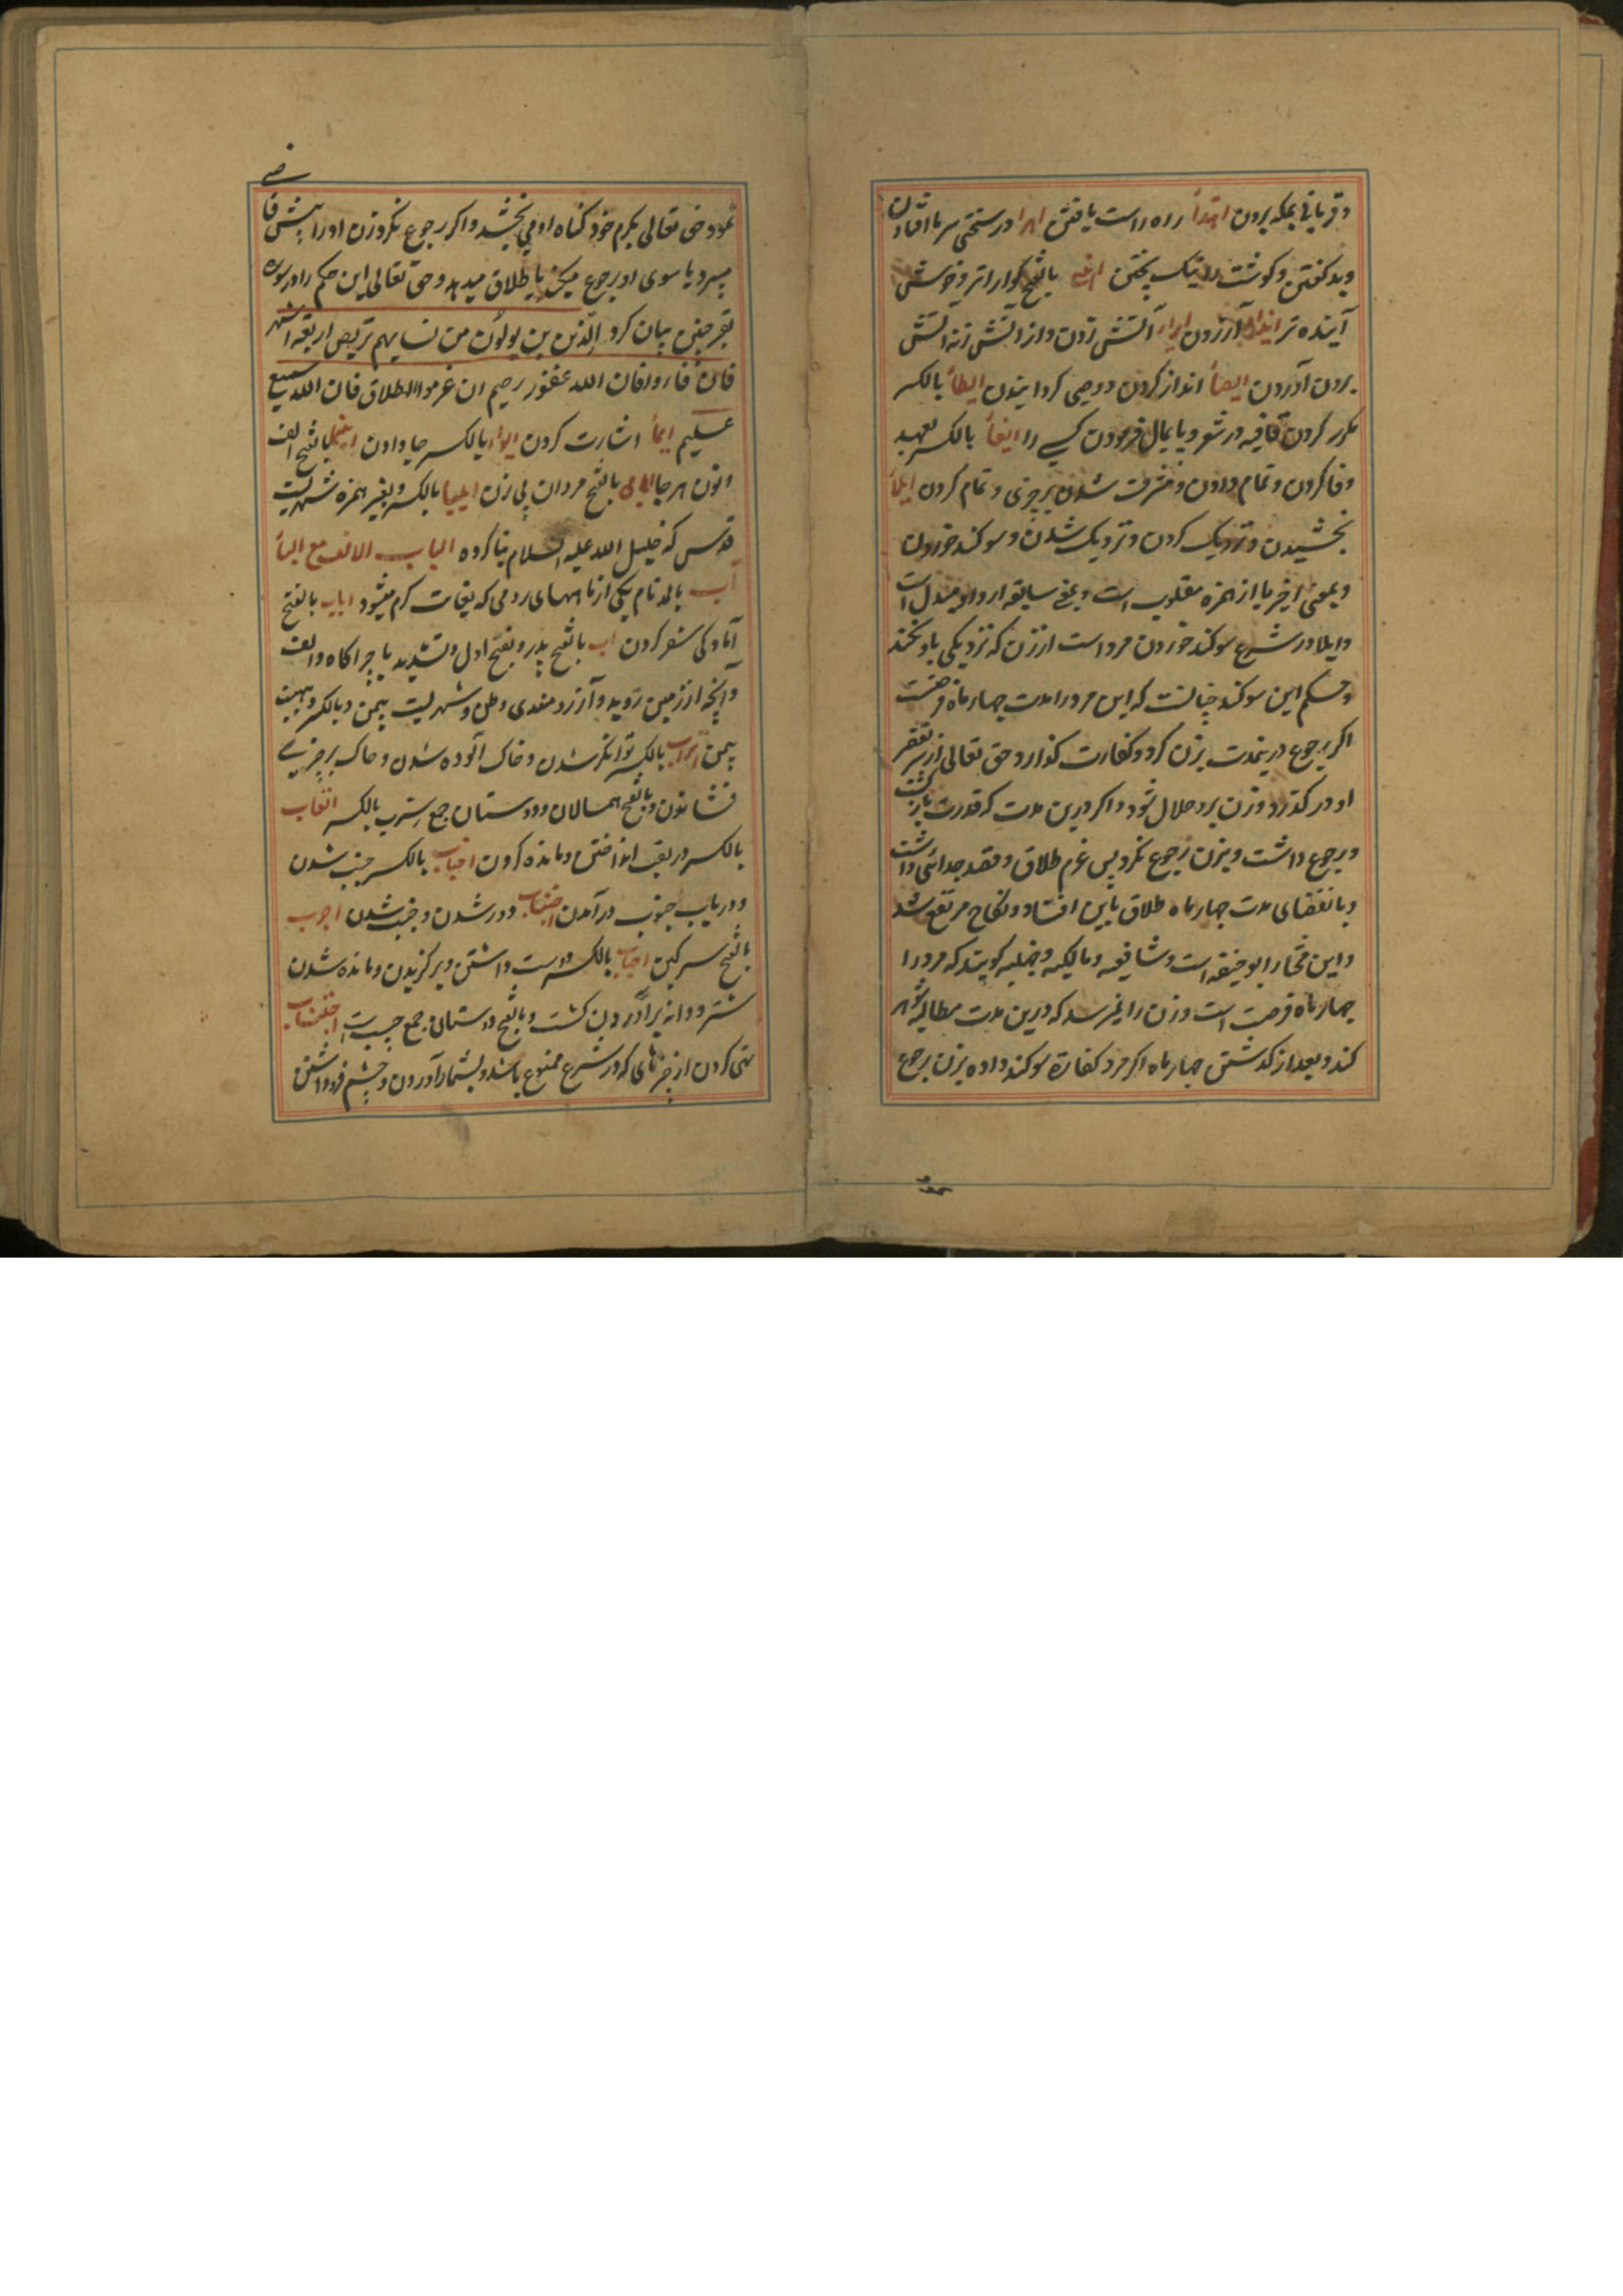 و قربانی بمکه بردن اهتدا راه راست یافتن اهرا در سختی سرما افتادن
و بد گفتن و گوشت را نیک پختن بالفتح گواراتر و خوش
آینده تر ایذا آزردن ایرا آتش زدن و از آتش زنه آتش
بردن آوردن ایصأ اندرز کردن و وصی گردانیدن ایطأ بالکسر
مکرر کردن قافیه در شعر و پایمال فرمودن کسی را ایفأ بالکسر بعهد
وفا کردن و تمام دادن و مشرف شدن بر چیزی و تمام کردن ایلأ
بخشیدن و نزدیک کردن و نزدیک شدن و سوکند خوردن
و بمعنی اخیر یا از همزه مقلوب است و بمعنی سابقه از واو مبدل است
و ایلا در شرع سوکند خوردن مرد است از زن که نزدیکی باو نکند
و حکم این سوکند چنانست که این مرد را مدت چهار ماه فرصت
اکر رجوع درینمدت بزن کرد و کفارت گذارد حق تعالی از سر تقصیر
او در گذرد و زن برو حلال شود و اکر درین مدت که قدرت بازگشت
و رجوع داشت و بزن رجوع نکرد پس عزم طلاق و قصد جدائی داشت
و بانقضای مدت چهار ماه طلاق باین افتاد و نکاح مرتفع شد
و این مختار ابو حنیفه است و شافعیه و مالکیه و حنبلیه گویند که مرد را
چهار ماه فرصت است و زن را نمیرسد که درین مدت مطالبه شوهر
کند و بعد از گذشتن چهار ماه اکر مرد کفاره سوکند داده بزن رجوع
نمود حق تعالی بکرم خود کناه او می بخشد و اکر رجوع نکرد زن او را پیش قاضی
میبرد یا سوی او رجوع میکند یا طلاق میدهد و حق تعالی این حکم را در سوره
بقر چنین بیان کرد الّذین یولؤن من نسایهم تربص اربعه اشهر
فان فاروا فان الله غفور رحیم ان عزموا الطلاق فان الله سمیع
علیم ایمأ اشارت کردن ایوا بالکسر جا دادن اینما بالفتح الف
و نون هر جا ایامی بالفتح مردان بی زن ایلیا بالکسر و بغیر همزه شهریست
قدس که خلیل الله علیه السلام بنا کرده الباب الالف مع البأ
آب بالمد نام یکی از ماههای رومی که بغایت گرم میشود اباب بالفتح
آمادگی سفر کردن اب بالفتح پدر و بفتح اول و تشدید با چراگاه و الف
و آنچه از زمین روید و آرزومندی وطن و شهریست بیمن و بالکسر دهیست
بیمن اتراب بالکسر توانگر شدن و خاک آلوده شدن و خاک بر چیزی
فشاندن و بالفتح همسالان و دوستان جمع ترب بالکسر اتعاب
بالکسر در تعب انداختن و مانده کردن اجناب بالکسر جنب شدن
و در باب جنوب در آمدن اجتناب و دور شدن و جنب شدن اجرب
بالفتح سرکین احباب بالکسر دوست داشتن و برگزیدن و مانده شدن
شتر و دانه برآوردن کشت و بالفتح دوستان جمع حبیب احتساب
نهی کردن از چیزهای که در شرع ممنوع باشد و بشمار آوردن و چشم فرو داشتن